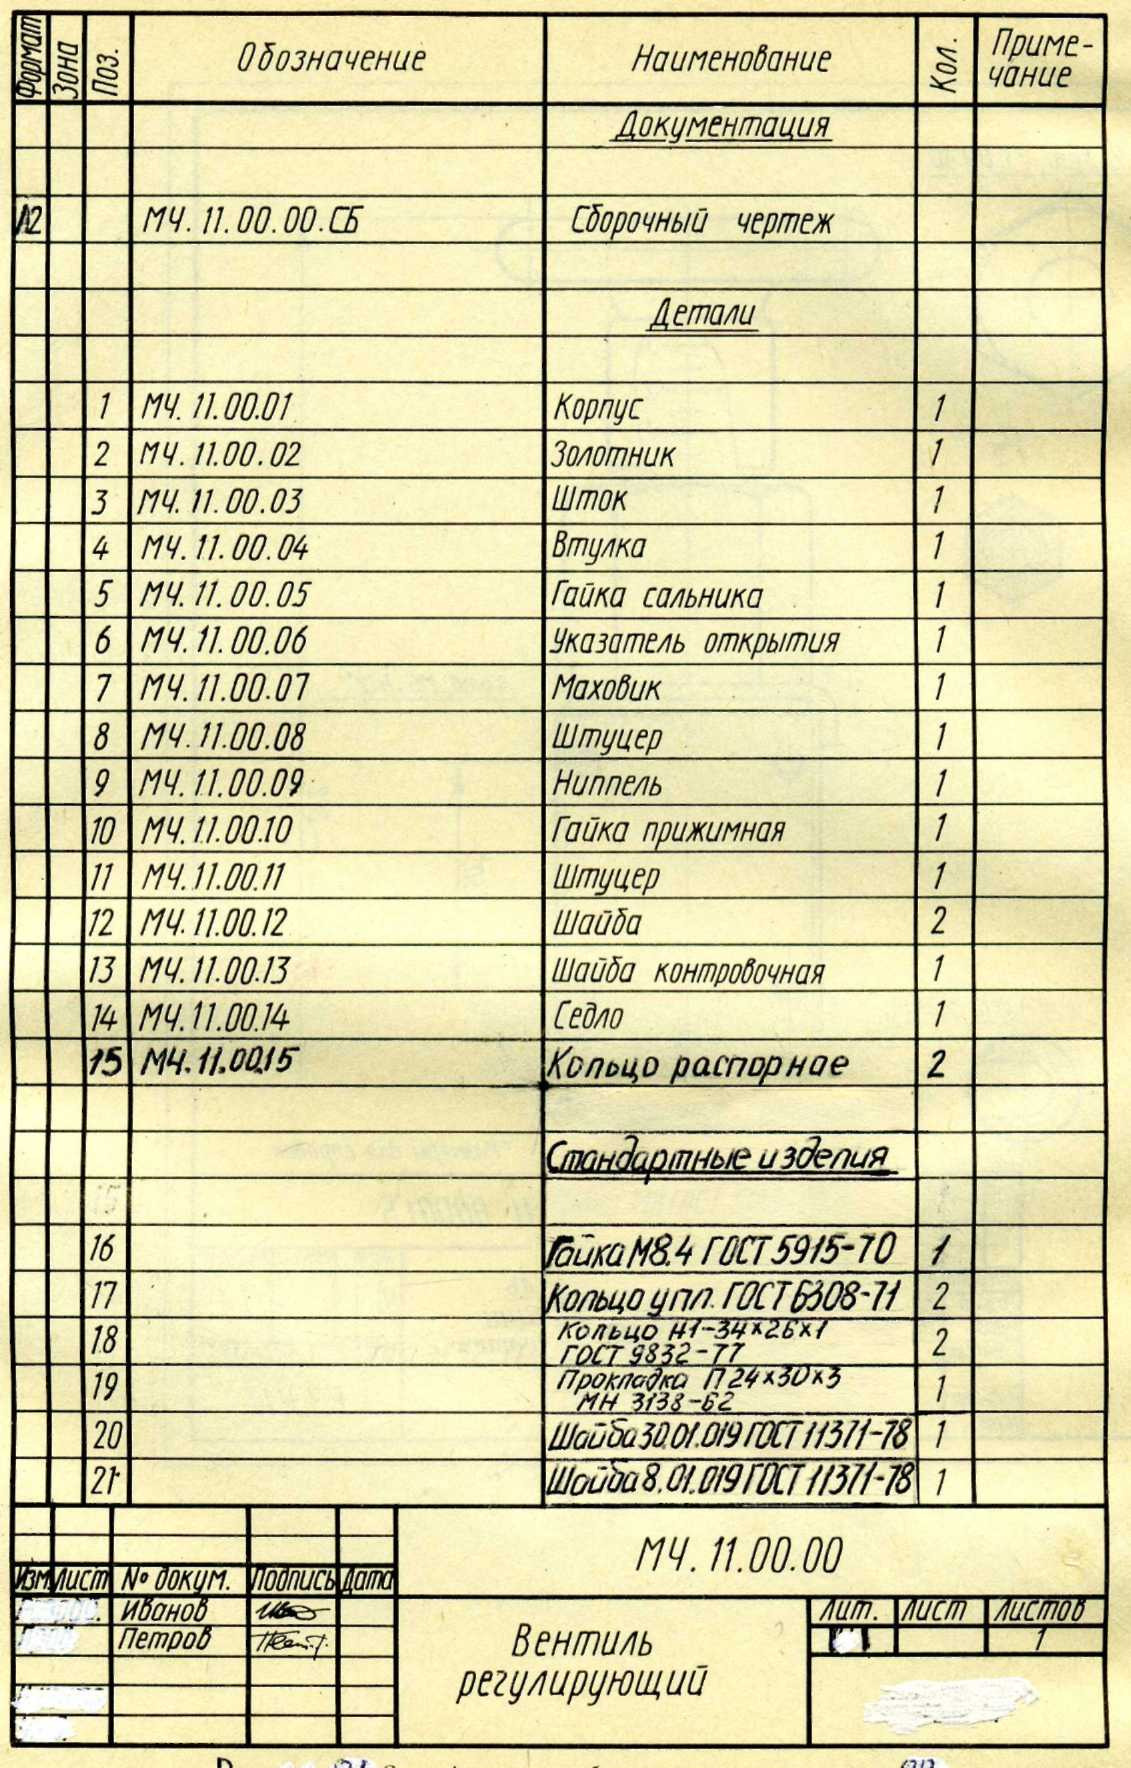 Формат Зона Поз. Обозначение Наименование Кол. Приме-
чание
Документация
А2 МЧ. 11.00.00.СБ Сборочный чертеж
Детали
1 МЧ. 11.00.01 Корпус 1
2 МЧ. 11.00.02 Золотник 1
3 МЧ. 11.00.03 Шток 1
4 МЧ. 11.00.04 Втулка 1
5 МЧ. 11.00.05 Гайка сальника 1
6 МЧ. 11.00.06 Указатель открытия 1
7 МЧ. 11.00.07 Маховик 1
8 МЧ. 11.00.08 Штуцер 1
9 МЧ. 11.00.09 Ниппель 1
10 МЧ. 11.00.10 Гайка прижимная 1
11 МЧ. 11.00.11 Штуцер 1
12 МЧ. 11.00.12 Шайба 2
13 МЧ. 11.00.13 Шайба контровочная 1
14 МЧ. 11.00.14 Седло 1
15 МЧ. 11.00.15 Кольцо распорнае 2
Стандартные изделия
16 Гайка М8.4 ГОСТ 5915-70 1
17 Кольцо упл. ГОСТ 6308-71 2
18 Кольцо Н1-34×26×1
ГОСТ 9832-77 2
19 Прокладка П 24×30×3
МН 3138-62 1
20 Шайба 30.01.019 ГОСТ 11371-78 1
21 Шайба 8.01.019 ГОСТ 11371-78 1
МЧ. 11.00.00
Изм Лист № докум. Подпись Дата
Иванов
Петров
Вентиль
регулирующий
Лит. Лист Листов
1